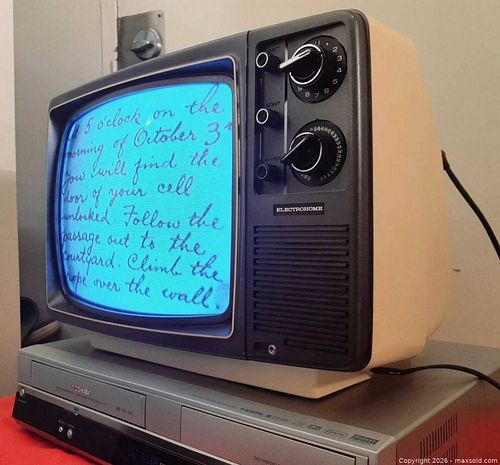 At 5 o'clock on the
morning of October 3rd
you will find the
door of your cell
unlocked. Follow the
passage out to the
courtyard. Climb the
rope over the wall.
ELECTROHOME
TOSHIBA
HDMI
2
3
4
5
6
7
8
Copyright 2026 - maxsold.com